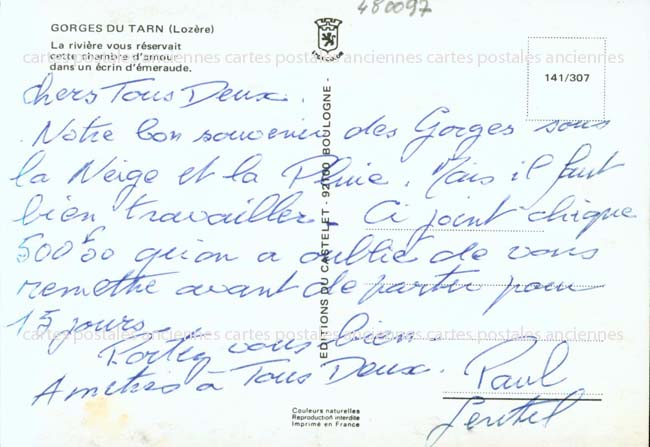 480097
GORGES DU TARN (Lozère)
La rivière vous réservait
cette chambre d'amour
dans un écrin d'émeraude.
141/307
cartes postales anciennes cartes postales anciennes cartes postales anciennes
Chers Tous Deux.
Notre bon souvenir des Gorges sous
la Neige et la Pluie. Mais il faut
bien travailler. Ci joint chèque
500F00 qu'on a oublié de vous
remettre avant de partir pour
15 jours.
Portez vous bien.
Amitiés à Tous Deux. Paul
EDITIONS DU CASTELET - 92100 BOULOGNE -
Couleurs naturelles
Reproduction interdite
Imprimé en France